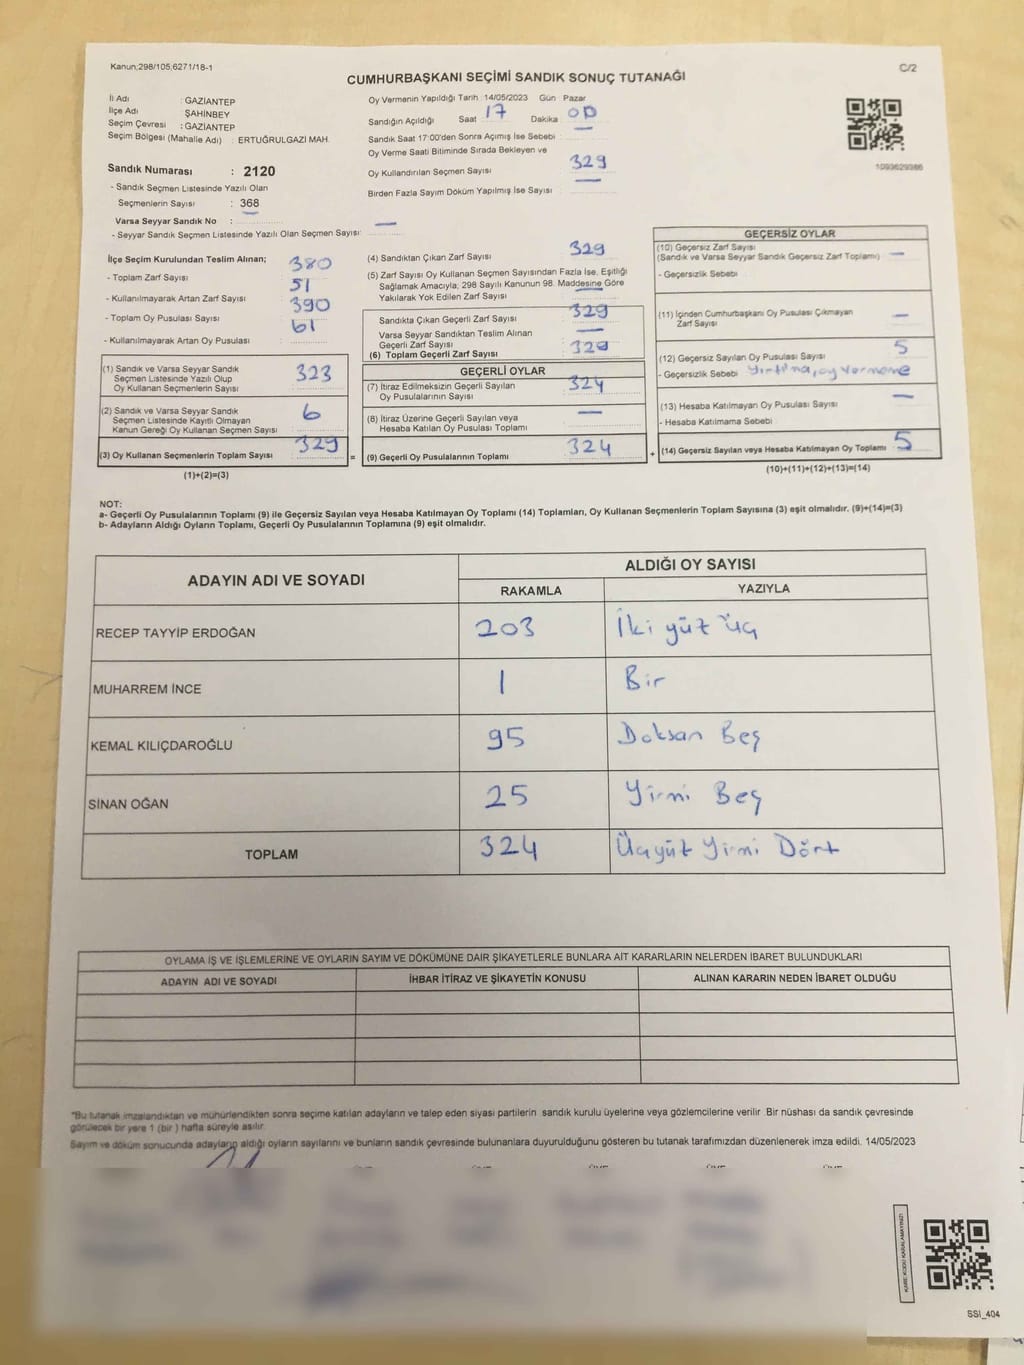 Kanun;298/105;6271/18-1
C/2
CUMHURBAŞKANI SEÇİMİ SANDIK SONUÇ TUTANAĞI
İl Adı : GAZİANTEP
İlçe Adı ŞAHİNBEY
Seçim Çevresi : GAZİANTEP
Seçim Bölgesi (Mahalle Adı) : ERTUĞRULGAZİ MAH.
Oy Vermenin Yapıldığı Tarih 14/05/2023 Gün Pazar
Sandığın Açıldığı Saat 17 Dakika 00
Sandık Saat 17:00'den Sonra Açımış İse Sebebi : —
Oy Verme Saati Bitiminde Sırada Bekleyen ve
Oy Kullandırılan Seçmen Sayısı 329
Birden Fazla Sayım Döküm Yapılmış İse Sayısı —
1093629386
Sandık Numarası : 2120
- Sandık Seçmen Listesinde Yazılı Olan
Seçmenlerin Sayısı : 368
Varsa Seyyar Sandık No : —
- Seyyar Sandık Seçmen Listesinde Yazılı Olan Seçmen Sayısı: —
İlçe Seçim Kurulundan Teslim Alınan;
- Toplam Zarf Sayısı 380
- Kullanılmayarak Artan Zarf Sayısı 51
- Toplam Oy Pusulası Sayısı 390
- Kullanılmayarak Artan Oy Pusulası 61
(1) Sandık ve Varsa Seyyar Sandık
Seçmen Listesinde Yazılı Olup
Oy Kullanan Seçmenlerin Sayısı 323
(2) Sandık ve Varsa Seyyar Sandık
Seçmen Listesinde Kayıtlı Olmayan
Kanun Gereği Oy Kullanan Seçmen Sayısı 6
(3) Oy Kullanan Seçmenlerin Toplam Sayısı 329 =
(1)+(2)=(3)
(4) Sandıktan Çıkan Zarf Sayısı 329
(5) Zarf Sayısı Oy Kullanan Seçmen Sayısından Fazla İse, Eşitliği
Sağlamak Amacıyla; 298 Sayılı Kanunun 98. Maddesine Göre
Yakılarak Yok Edilen Zarf Sayısı —
Sandıkta Çıkan Geçerli Zarf Sayısı 329
Varsa Seyyar Sandıktan Teslim Alınan
Geçerli Zarf Sayısı —
(6) Toplam Geçerli Zarf Sayısı 329
GEÇERLİ OYLAR
(7) İtiraz Edilmeksizin Geçerli Sayılan
Oy Pusulalarının Sayısı 324
(8) İtiraz Üzerine Geçerli Sayılan veya
Hesaba Katılan Oy Pusulası Toplamı —
(9) Geçerli Oy Pusulalarının Toplamı 324 +
GEÇERSİZ OYLAR
(10) Geçersiz Zarf Sayısı
(Sandık ve Varsa Seyyar Sandık Geçersiz Zarf Toplamı) —
- Geçersizlik Sebebi
(11) İçinden Cumhurbaşkanı Oy Pusulası Çıkmayan
Zarf Sayısı —
(12) Geçersiz Sayılan Oy Pusulası Sayısı 5
- Geçersizlik Sebebi Yırtılma, oy vermeme
(13) Hesaba Katılmayan Oy Pusulası Sayısı —
- Hesaba Katılmama Sebebi
(14) Geçersiz Sayılan veya Hesaba Katılmayan Oy Toplamı 5
(10)+(11)+(12)+(13)=(14)
NOT:
a- Geçerli Oy Pusulalarının Toplamı (9) ile Geçersiz Sayılan veya Hesaba Katılmayan Oy Toplamı (14) Toplamları, Oy Kullanan Seçmenlerin Toplam Sayısına (3) eşit olmalıdır. (9)+(14)=(3)
b- Adayların Aldığı Oyların Toplamı, Geçerli Oy Pusulalarının Toplamına (9) eşit olmalıdır.
ADAYIN ADI VE SOYADI
ALDIĞI OY SAYISI
RAKAMLA YAZIYLA
RECEP TAYYİP ERDOĞAN 203 İki yüz üç
MUHARREM İNCE 1 Bir
KEMAL KILIÇDAROĞLU 95 Doksan Beş
SİNAN OĞAN 25 Yirmi Beş
TOPLAM 324 Üçyüz Yirmi Dört
OYLAMA İŞ VE İŞLEMLERİNE VE OYLARIN SAYIM VE DÖKÜMÜNE DAİR ŞİKAYETLERLE BUNLARA AİT KARARLARIN NELERDEN İBARET BULUNDUKLARI
ADAYIN ADI VE SOYADI İHBAR İTİRAZ VE ŞİKAYETİN KONUSU ALINAN KARARIN NEDEN İBARET OLDUĞU
"Bu tutanak imzalandıktan ve mühürlendikten sonra seçime katılan adayların ve talep eden siyasi partilerin sandık kurulu üyelerine veya gözlemcilerine verilir. Bir nüshası da sandık çevresinde
görülecek bir yere 1 (bir) hafta süreyle asılır.
Sayım ve döküm sonucunda adayların aldığı oyların sayılarını ve bunların sandık çevresinde bulunanlara duyurulduğunu gösteren bu tutanak tarafımızdan düzenlenerek imza edildi. 14/05/2023
KARE KODU KARALAMAYINIZ!
SSI_404